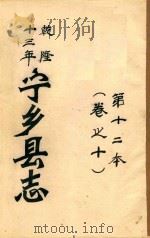 第十二本
（卷之十）
乾隆
十三年
宁乡县志